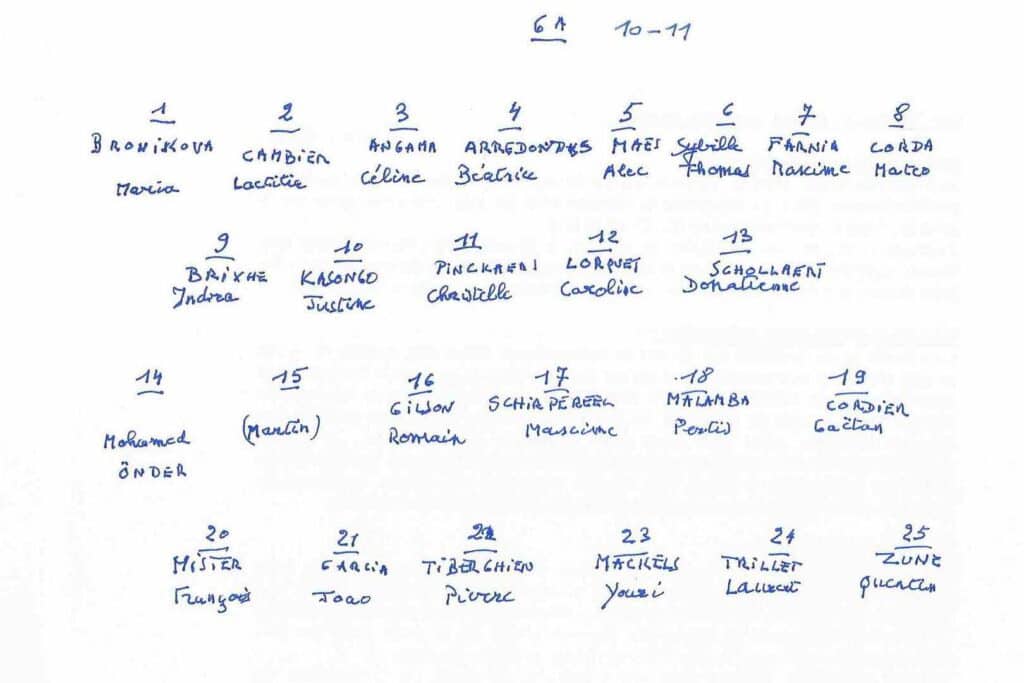 6A 10-11
1 2 3 4 5 6 7 8
BRONIKOVA CAMBIER ANGAMA ARREDONDOS MAES Sybille FARNIR CORDA
Maria Laetitia Céline Béatrice Alec Thomas Maxime Mateo
9 10 11 12 13
BRIXHE KASONGO PINCKAERS LORQUET SCHOLLAERT
Indra Justine Christelle Caroline Donatienne
14 15 16 17 18 19
GILSON SCHIRPEREEL MALAMBA CORDIER
Mohamed (Martin) Romain Maxime Gaëtan
ÖNDER
20 21 22 23 24 25
MISIER GARCIA TIBERGHIEN MACKELS TRILLET ZUNE
François Joao Pierre Youri Laurent Quentin